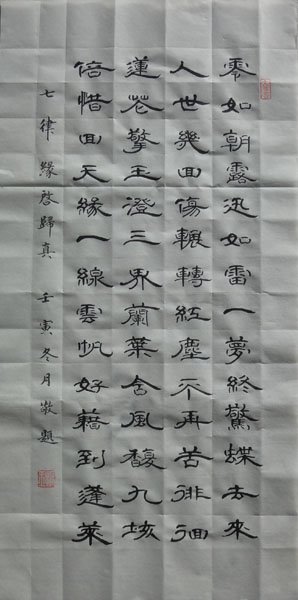 零如朝露迅如雷一夢終驚蝶去來
人世幾回傷輾轉紅塵不再苦徘徊
蓮花擎玉澄三界蘭葉含風馥九垓
倍惜回天緣一線雲帆好藉到蓬萊
七律緣啓歸真 壬寅冬月敬題